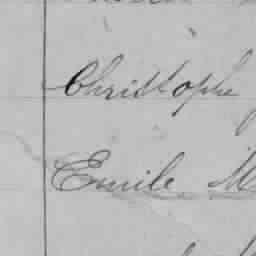 Christophe
Emile M